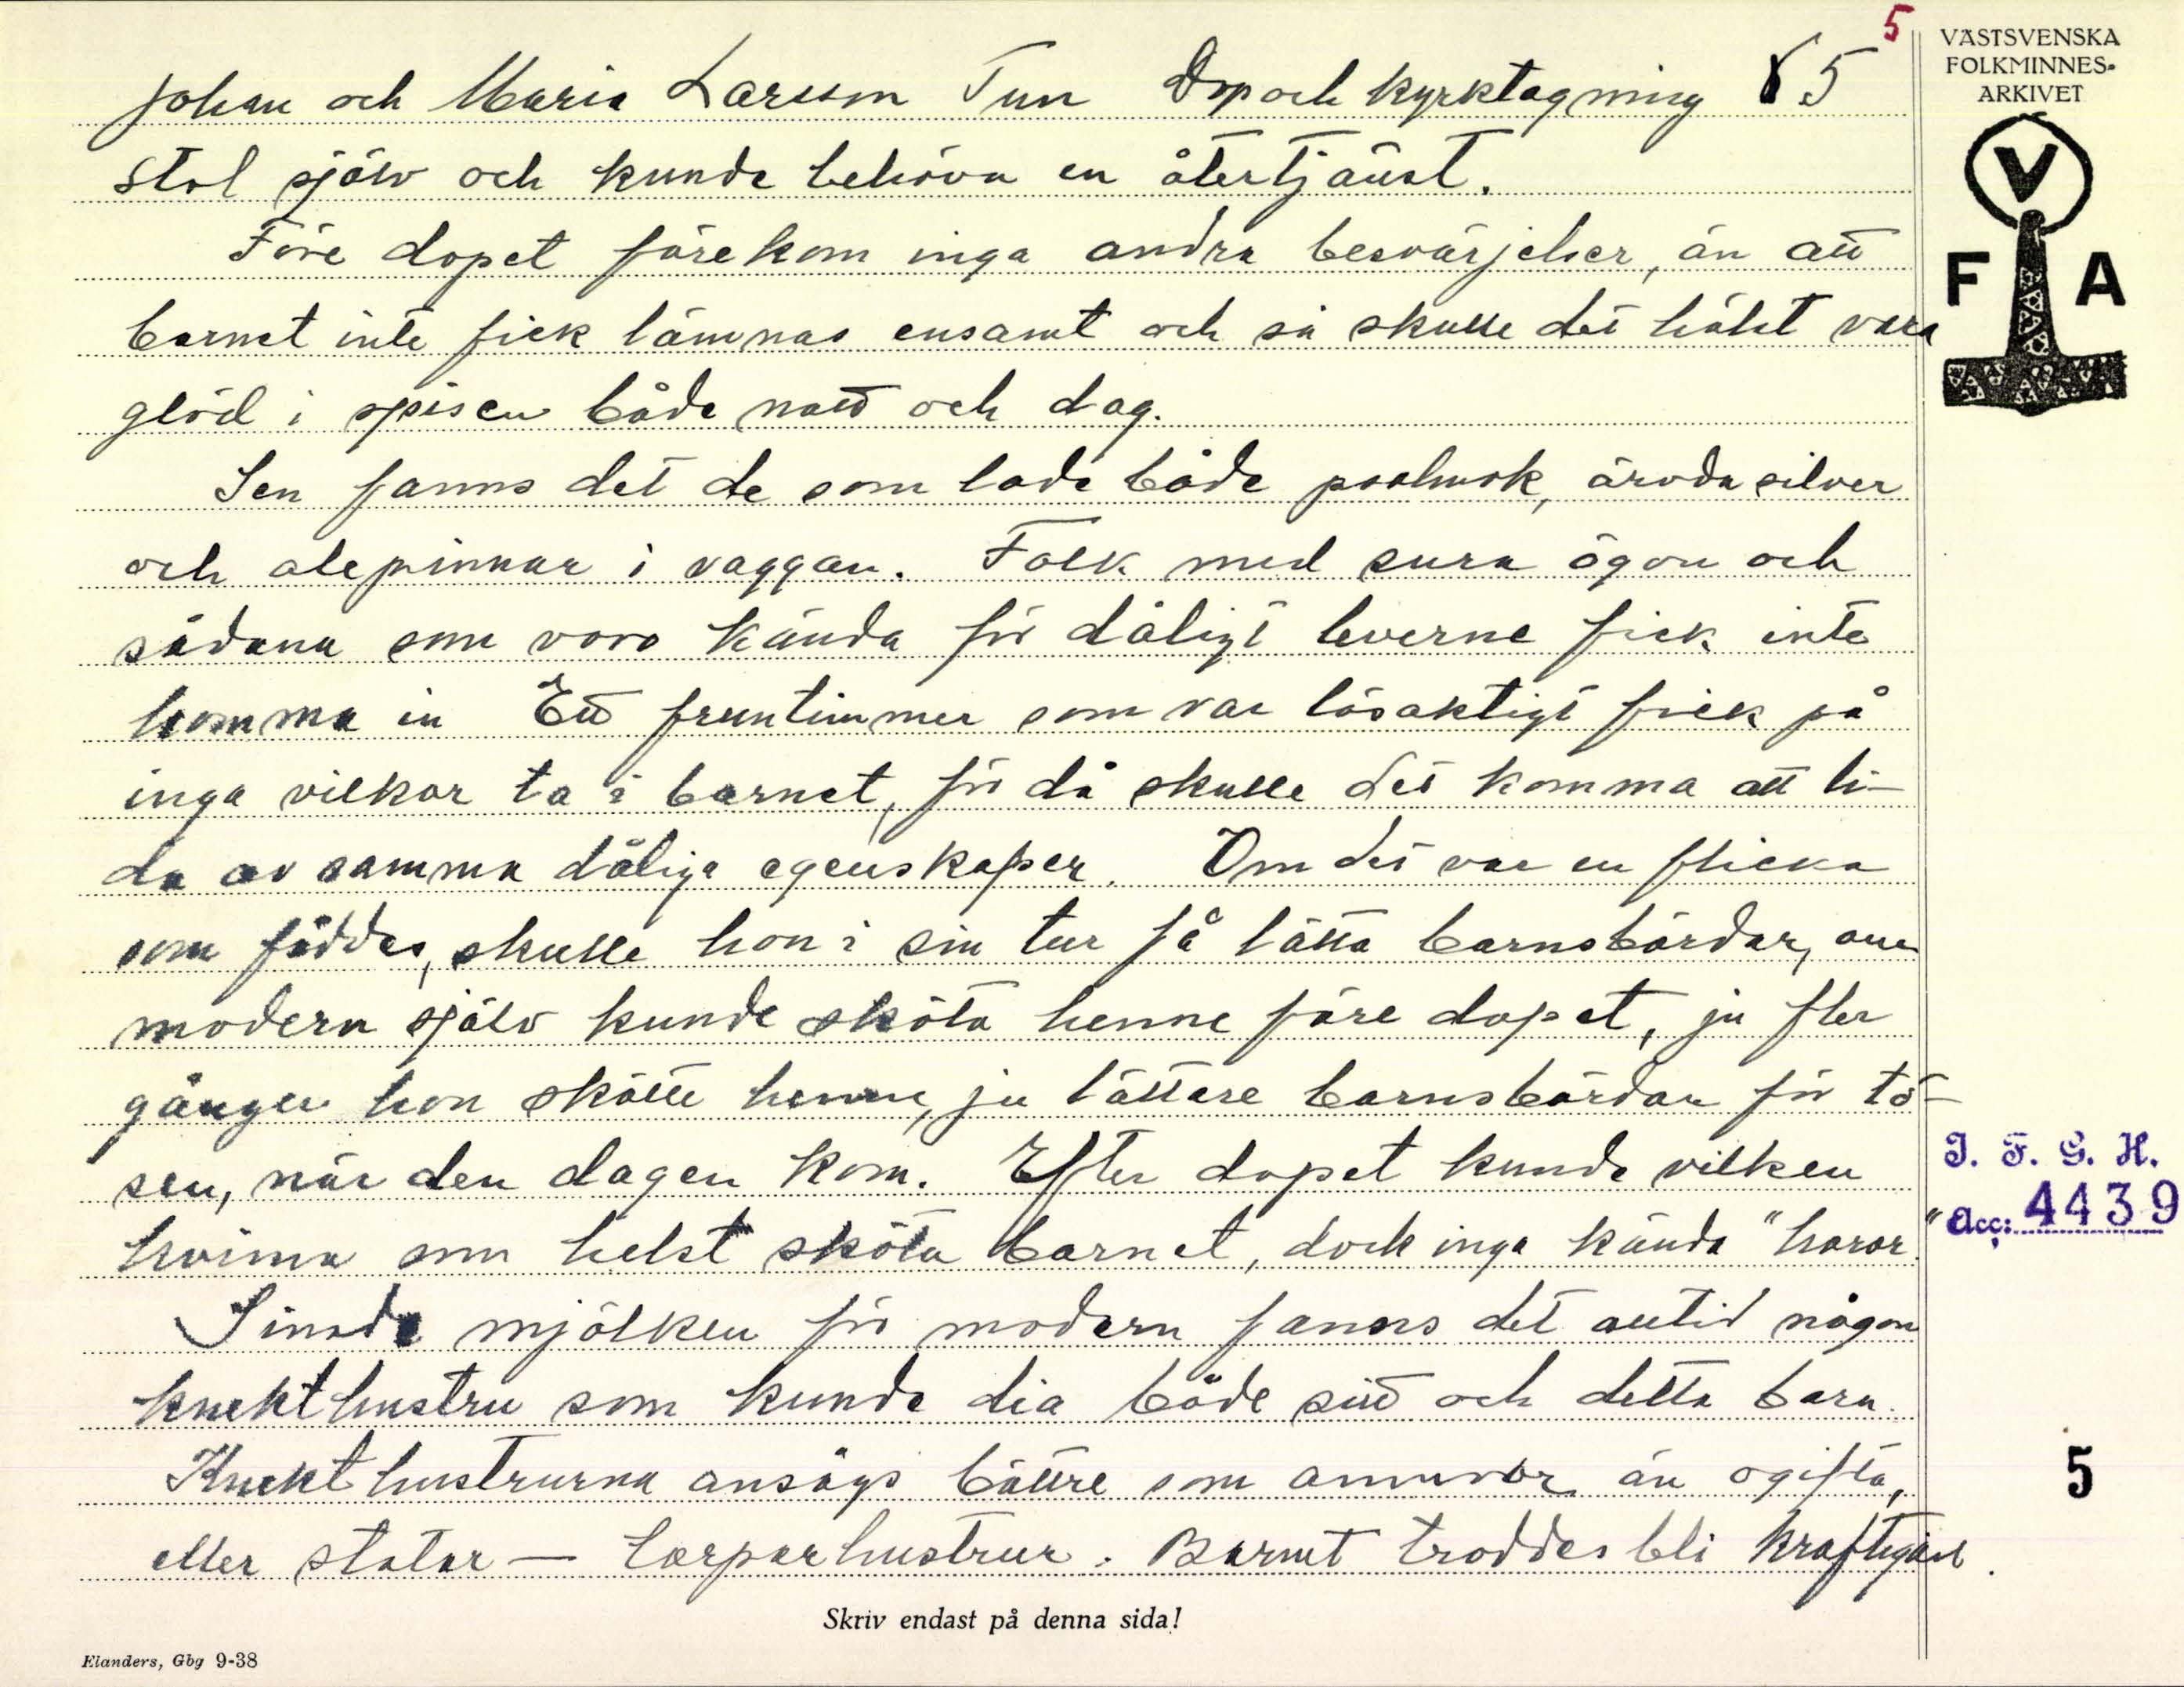 5
VÄSTSVENSKA
FOLKMINNES-
ARKIVET
V
F A
Johan och Maria Larsson Tun Dop och kyrktagning 5
stol själv och kunde behöva en återtjänst.
Före dopet förekom inga andra besvärjelser, än att
barnet inte fick lämnas ensamt och så skulle det hälst vara
glöd i spisen både natt och dag.
Sen fanns det de som lade både psalmbok, ärvda silver
och alepinnar i vaggan. Folk med sura ögon och
sådana som voro kända för dåligt leverne fick inte
komma in Ett fruntimmer som var lösaktigt fick på
inga vilkor ta i barnet, för då skulle det komma att li-
da av samma dåliga egenskaper. Om det var en flicka
som föddes, skulle hon i sin tur få lätta barnsbördar, om
modern själv kunde sköta henne före dopet, ju fler
gånger hon skötte henne, ju lättare barnsbördar för tö-
sen, när den dagen kom. Efter dopet kunde vilken
kvinna som helst sköta barnet, dock inga kända "horor."
Sinade mjölken för modern fanns det alltid någon
knekthustru som kunde dia både sitt och detta barn.
Knekthustrurna ansågs bättre som ammor än ogifta,
eller statar — torparhustrur. Barnet troddes bli kraftigare.
I. F. G. H.
Acc: 4439
5
Skriv endast på denna sida!
Elanders, Gbg 9-38